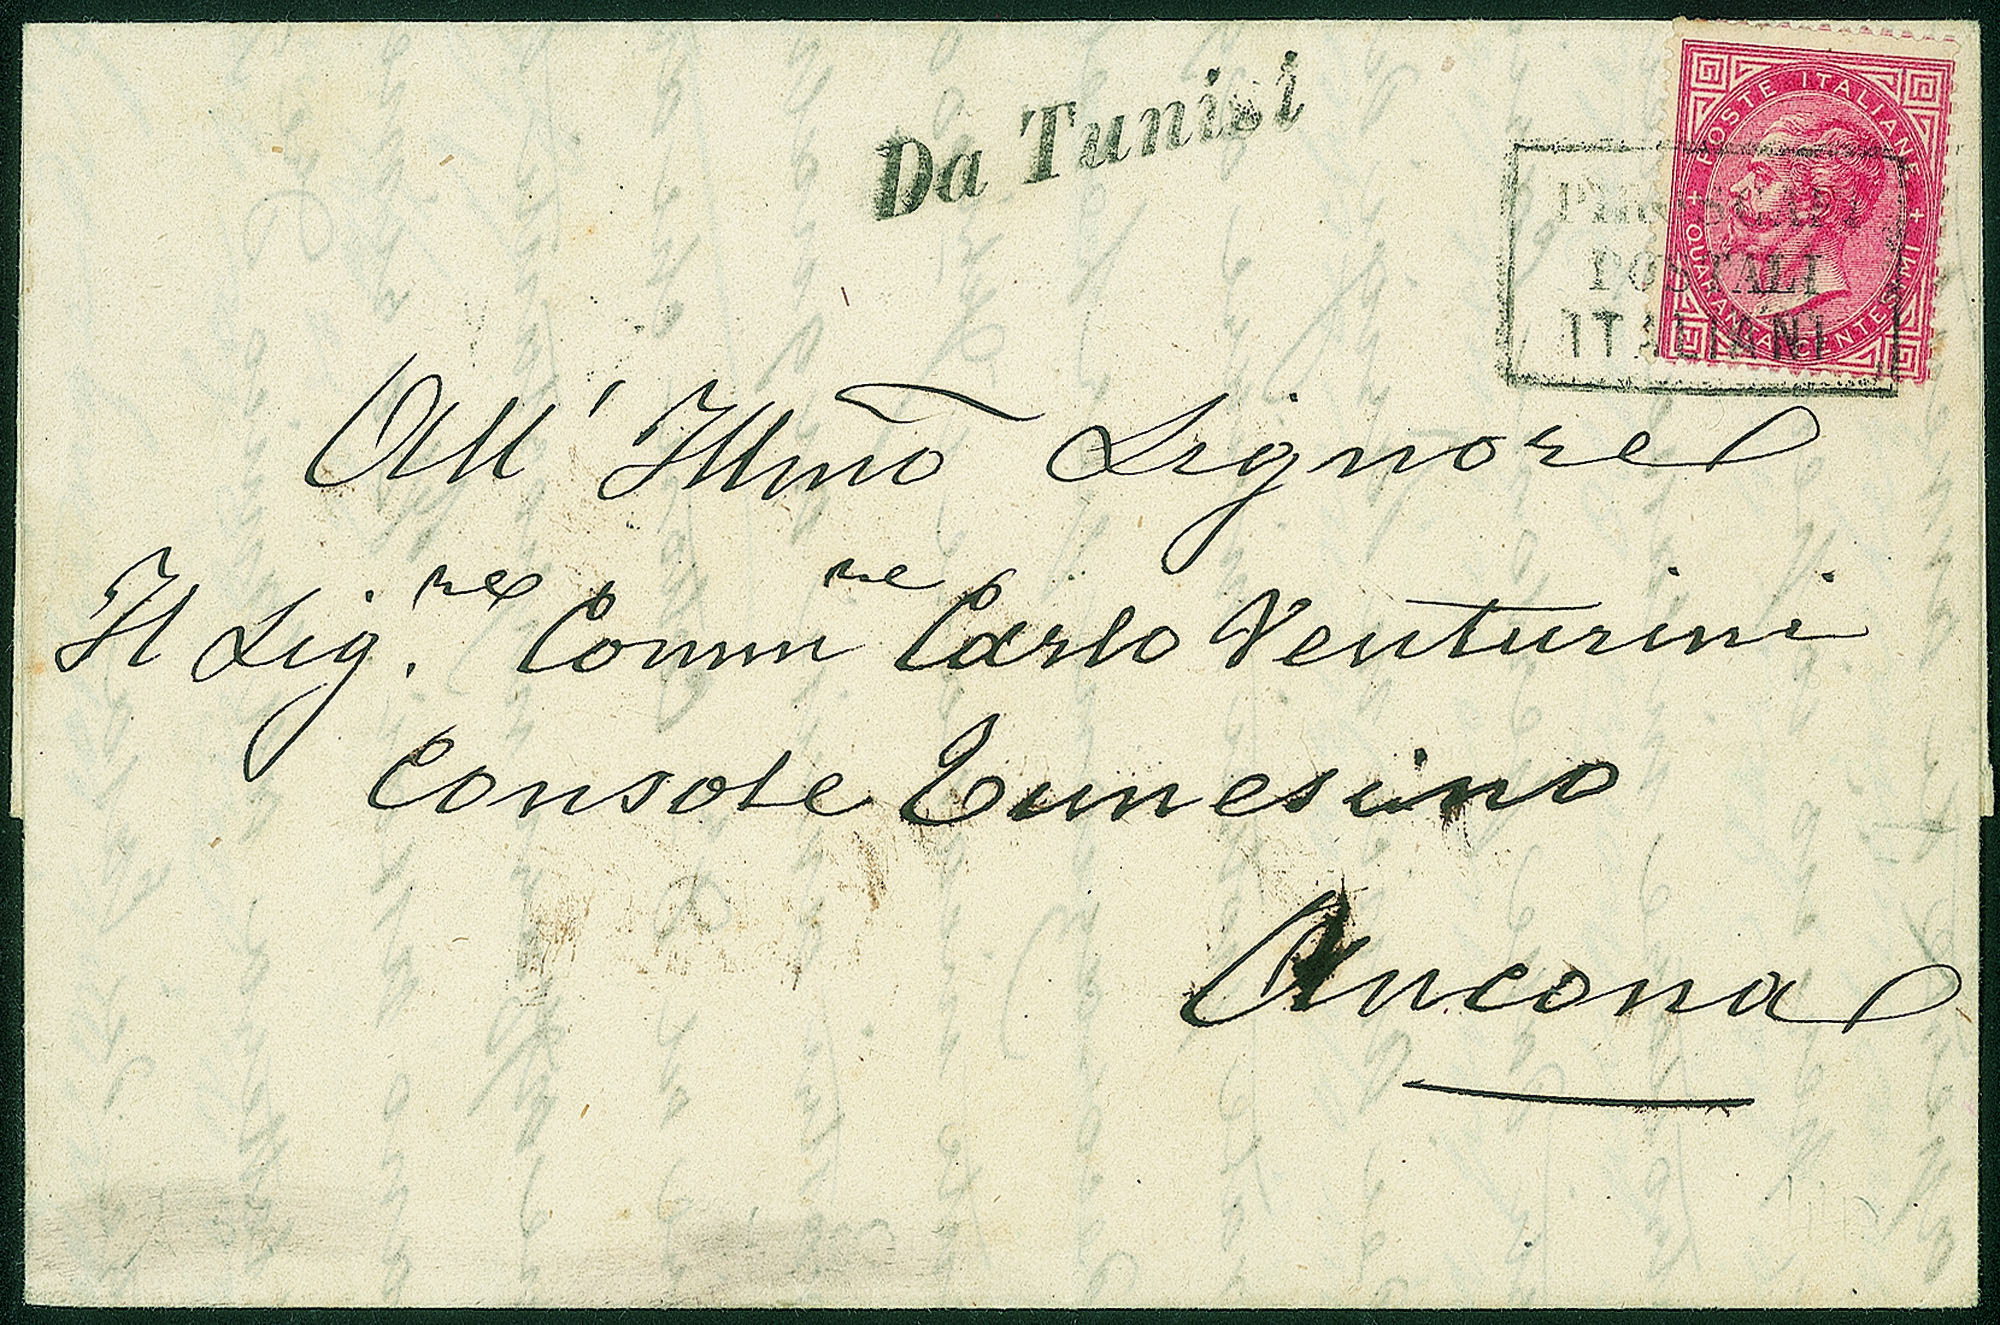 Da Tunisi
POSTE ITALIANE
QUARANTA CENTESIMI
PIROSCAFI
POSTALI
ITALIANI
All' Illmo Signore
Il Sig.re Commre Carlo Venturini
Console Tunesino
Ancona